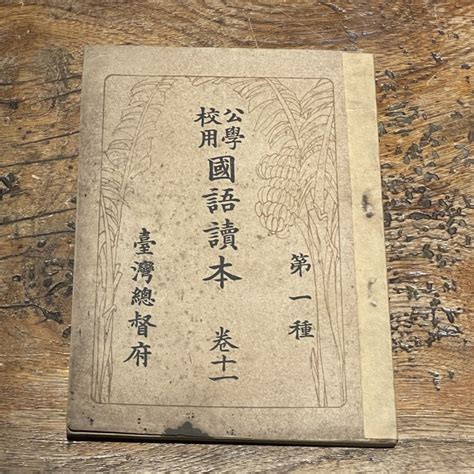 第一種
公學校用國語讀本 卷十一
臺灣總督府